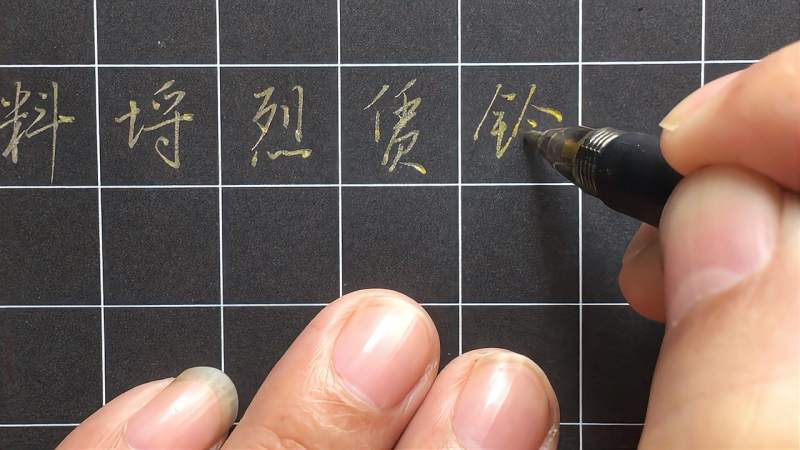 料埒烈赁